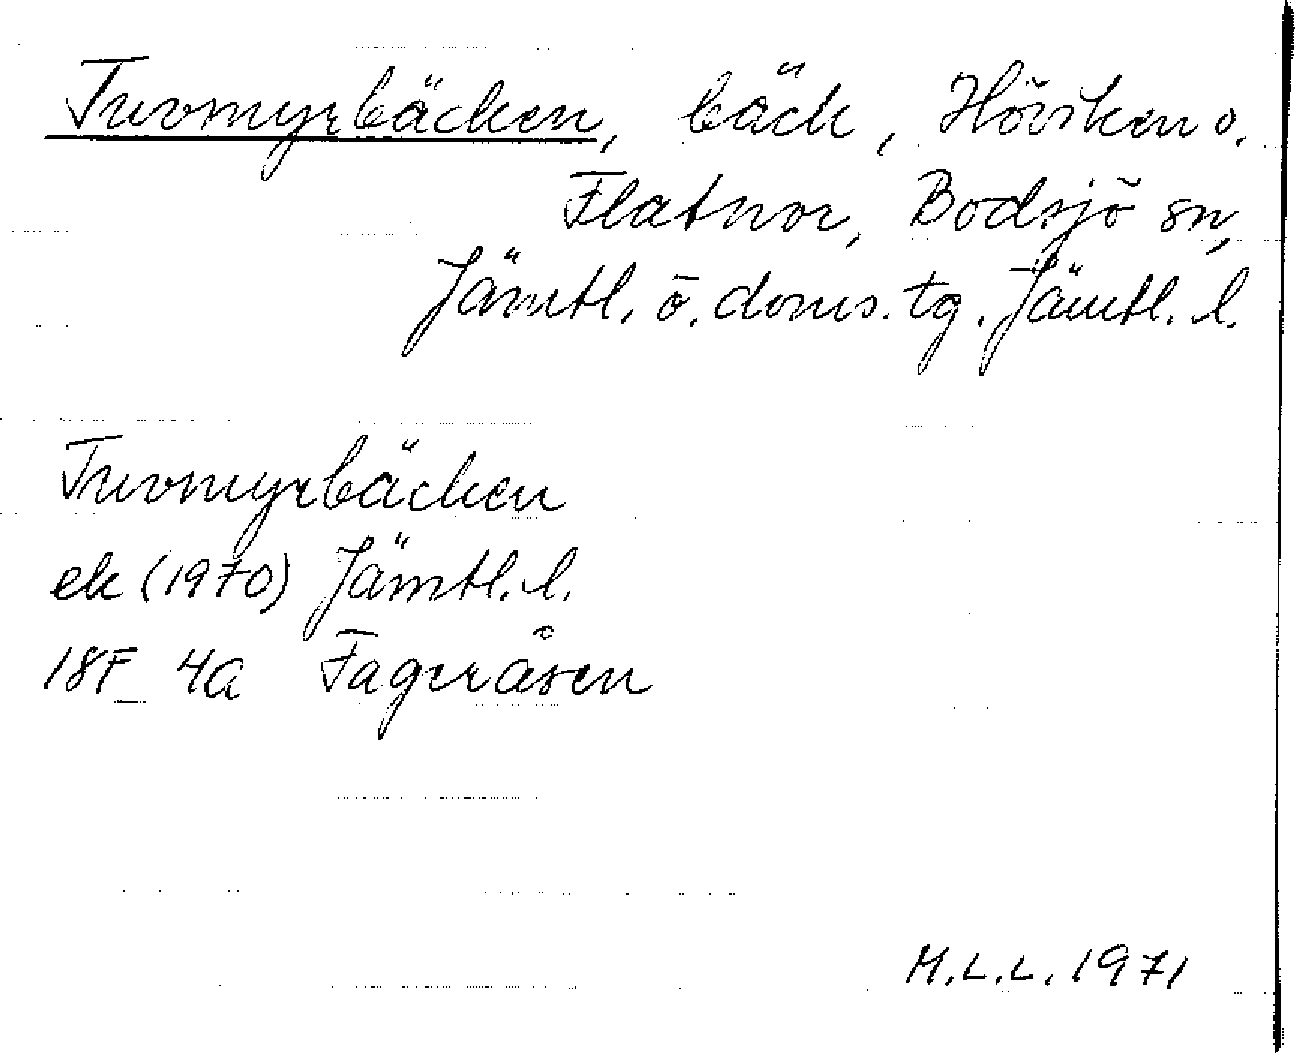 Tuvmyrbäcken, bäck, Höviken o.
Flatnor, Bodsjö sn,
Jämtl. ö. doms. tg. Jämtl. l.
Tuvmyrbäcken
ek (1970) Jämtl. l.
18F 4a Fageråsen
M.L.L. 1971